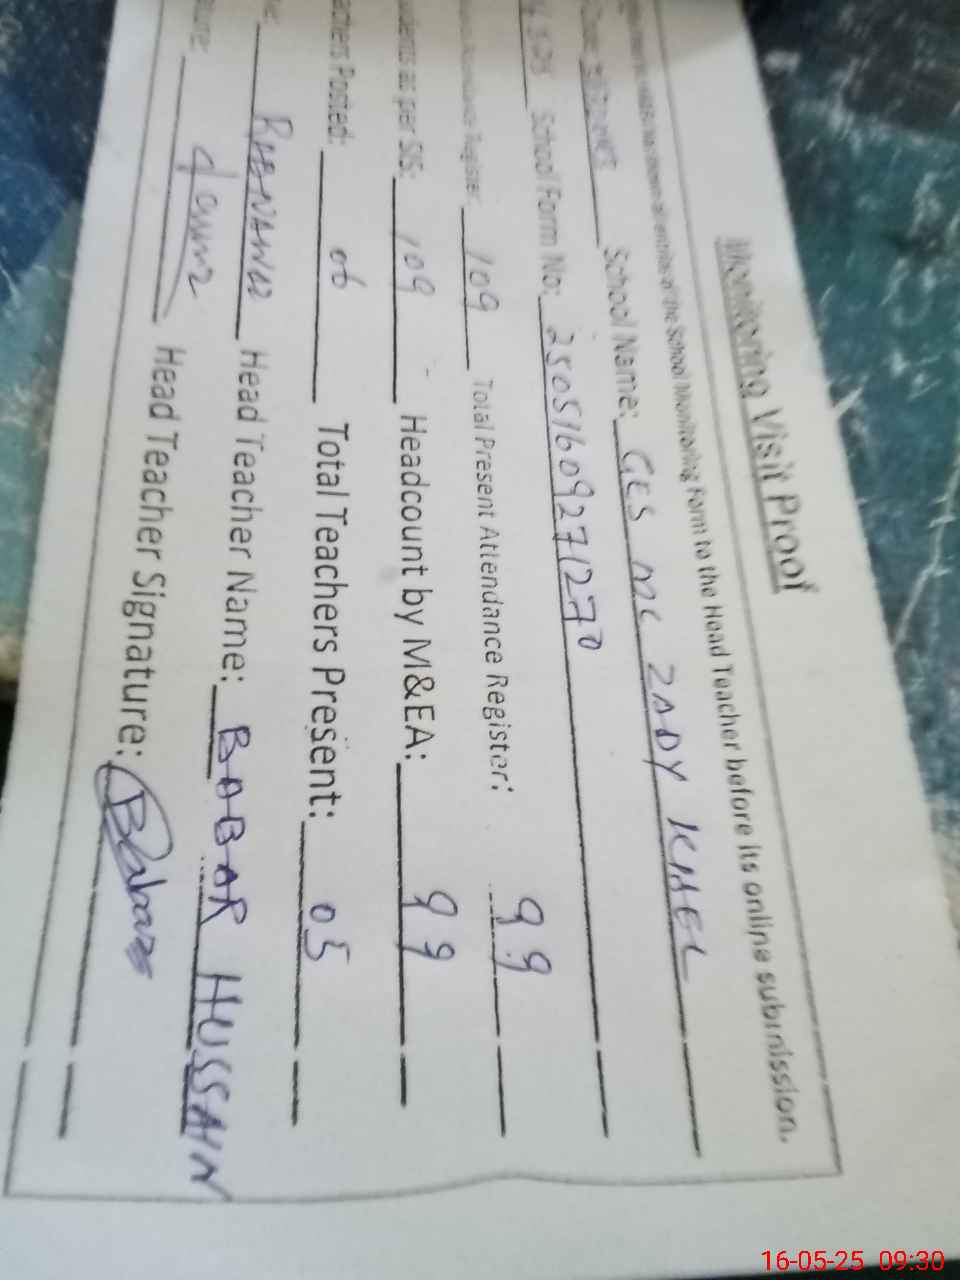 Monitoring Visit Proof
entries of the School Monitoring Form to the Head Teacher before its online submission.
School Name: GES MC ZADY KHEL
School Form No: 250516092712770
Register: 109 Total Present Attendance Register: 99
as per SIS: 109 Headcount by M&EA: 99
Posted: 06 Total Teachers Present: 05
Head Teacher Name: BABAR HUSSAIN
Head Teacher Signature:
16-05-25 09:30